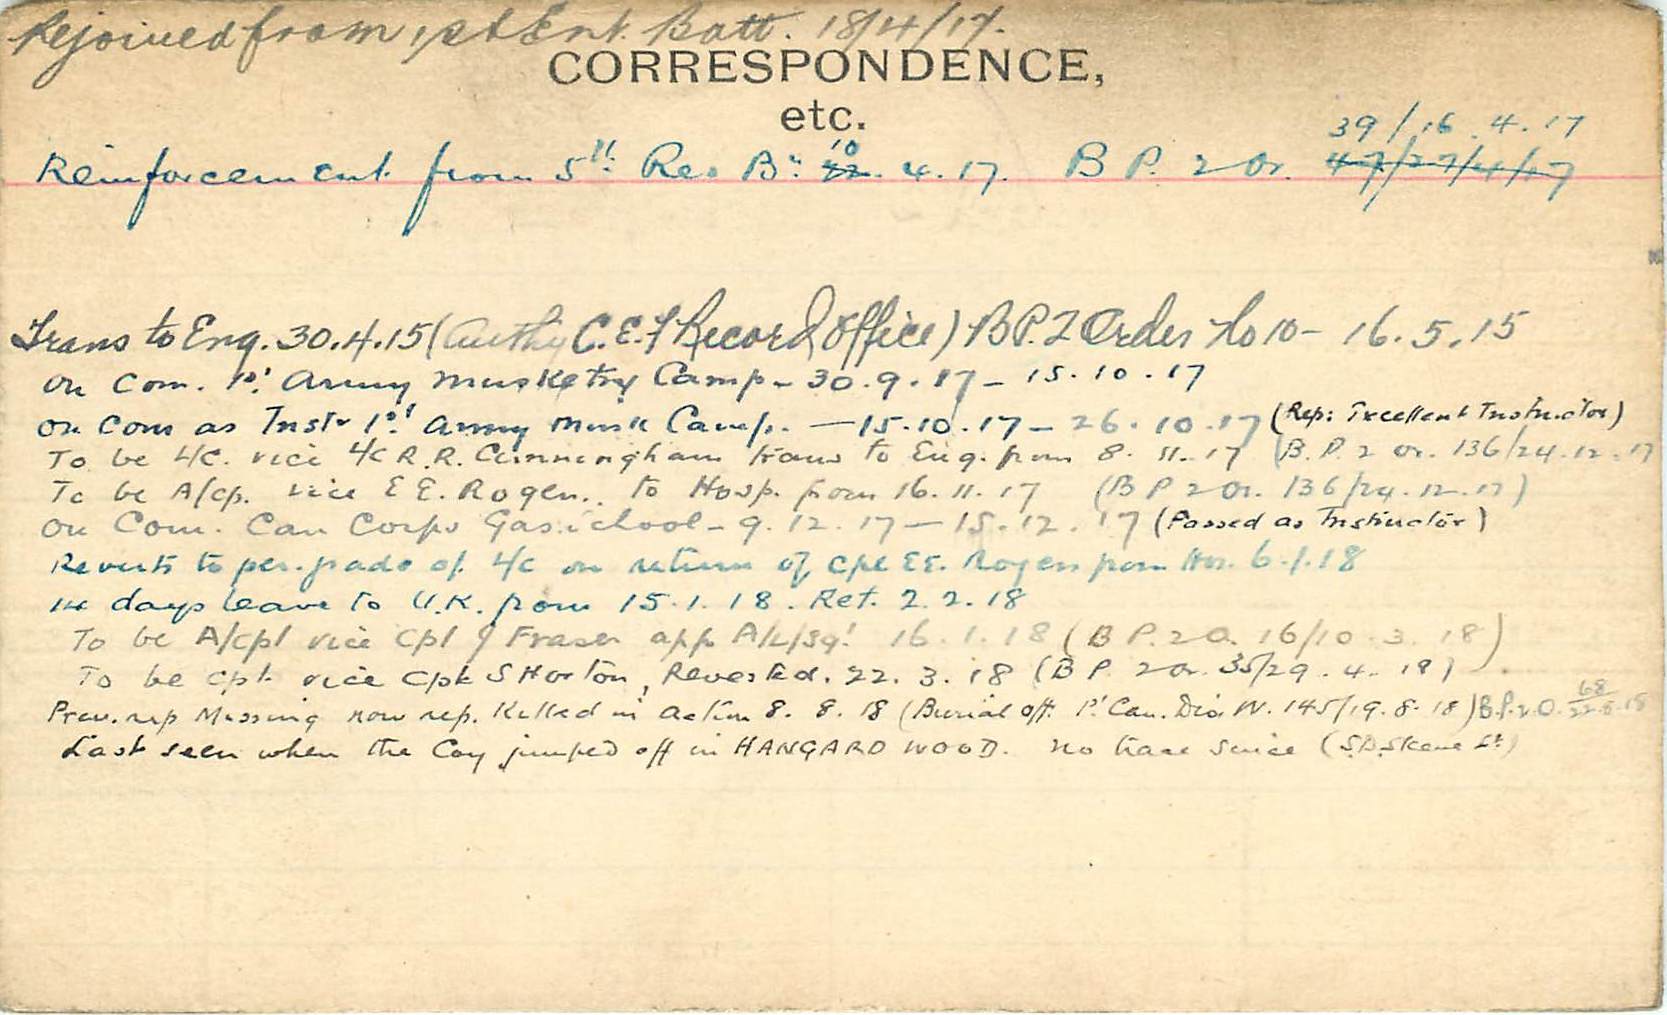 Rejoined from 1st Ent. Batt. 18/4/17.
CORRESPONDENCE,
etc.
39/16.4.17
Reinforcement from 5th Res Bn 10 22. 4. 17. B P. 2 Or. 47/27/4/17
Trans to Eng. 30.4.15 (Authy C.E.F Record Office) B P. 2 Order No 10 - 16.5.15
On Com. 1st Army Musketry Camp - 30.9.17 - 15.10.17
On Com as Instr 1st Army Musk Camp. - 15.10.17 - 26.10.17 (Rep: Excellent Instructor)
To be L/C. vice L/C R.R. Cunningham trans to Eng. from 8.11.17 (B.P. 2 Or. 136/24.12.17
To be A/Cp. vice E E. Rogers. to Hosp. from 16.11.17 (B P 2 Or. 136/24.12.17)
On Com. Can Corps Gas School - 9.12.17 - 15.12.17 (Passed as Instructor)
Reverts to per. grade of L/C on return of Cpl E E. Rogers from Hos. 6.1.18
14 days leave to U.K. from 15.1.18. Ret. 2.2.18
To be A/Cpl vice Cpl J Fraser app A/L/Sgt 16.1.18 (B P. 2 O. 16/10.3.18)
To be Cpl. vice Cpl S Horton, Reverted. 22.3.18 (B P. 2 Or. 35/29.4.18)
Prev. rep Missing now rep. Killed in Action 8.8.18 (Burial off. 1st Can. Div. W. 145/19.8.18) B.P.2.O. 68/22.8.18
Last seen when the Coy jumped off in HANGARD WOOD. No trace since (S.D. Skene Lt)